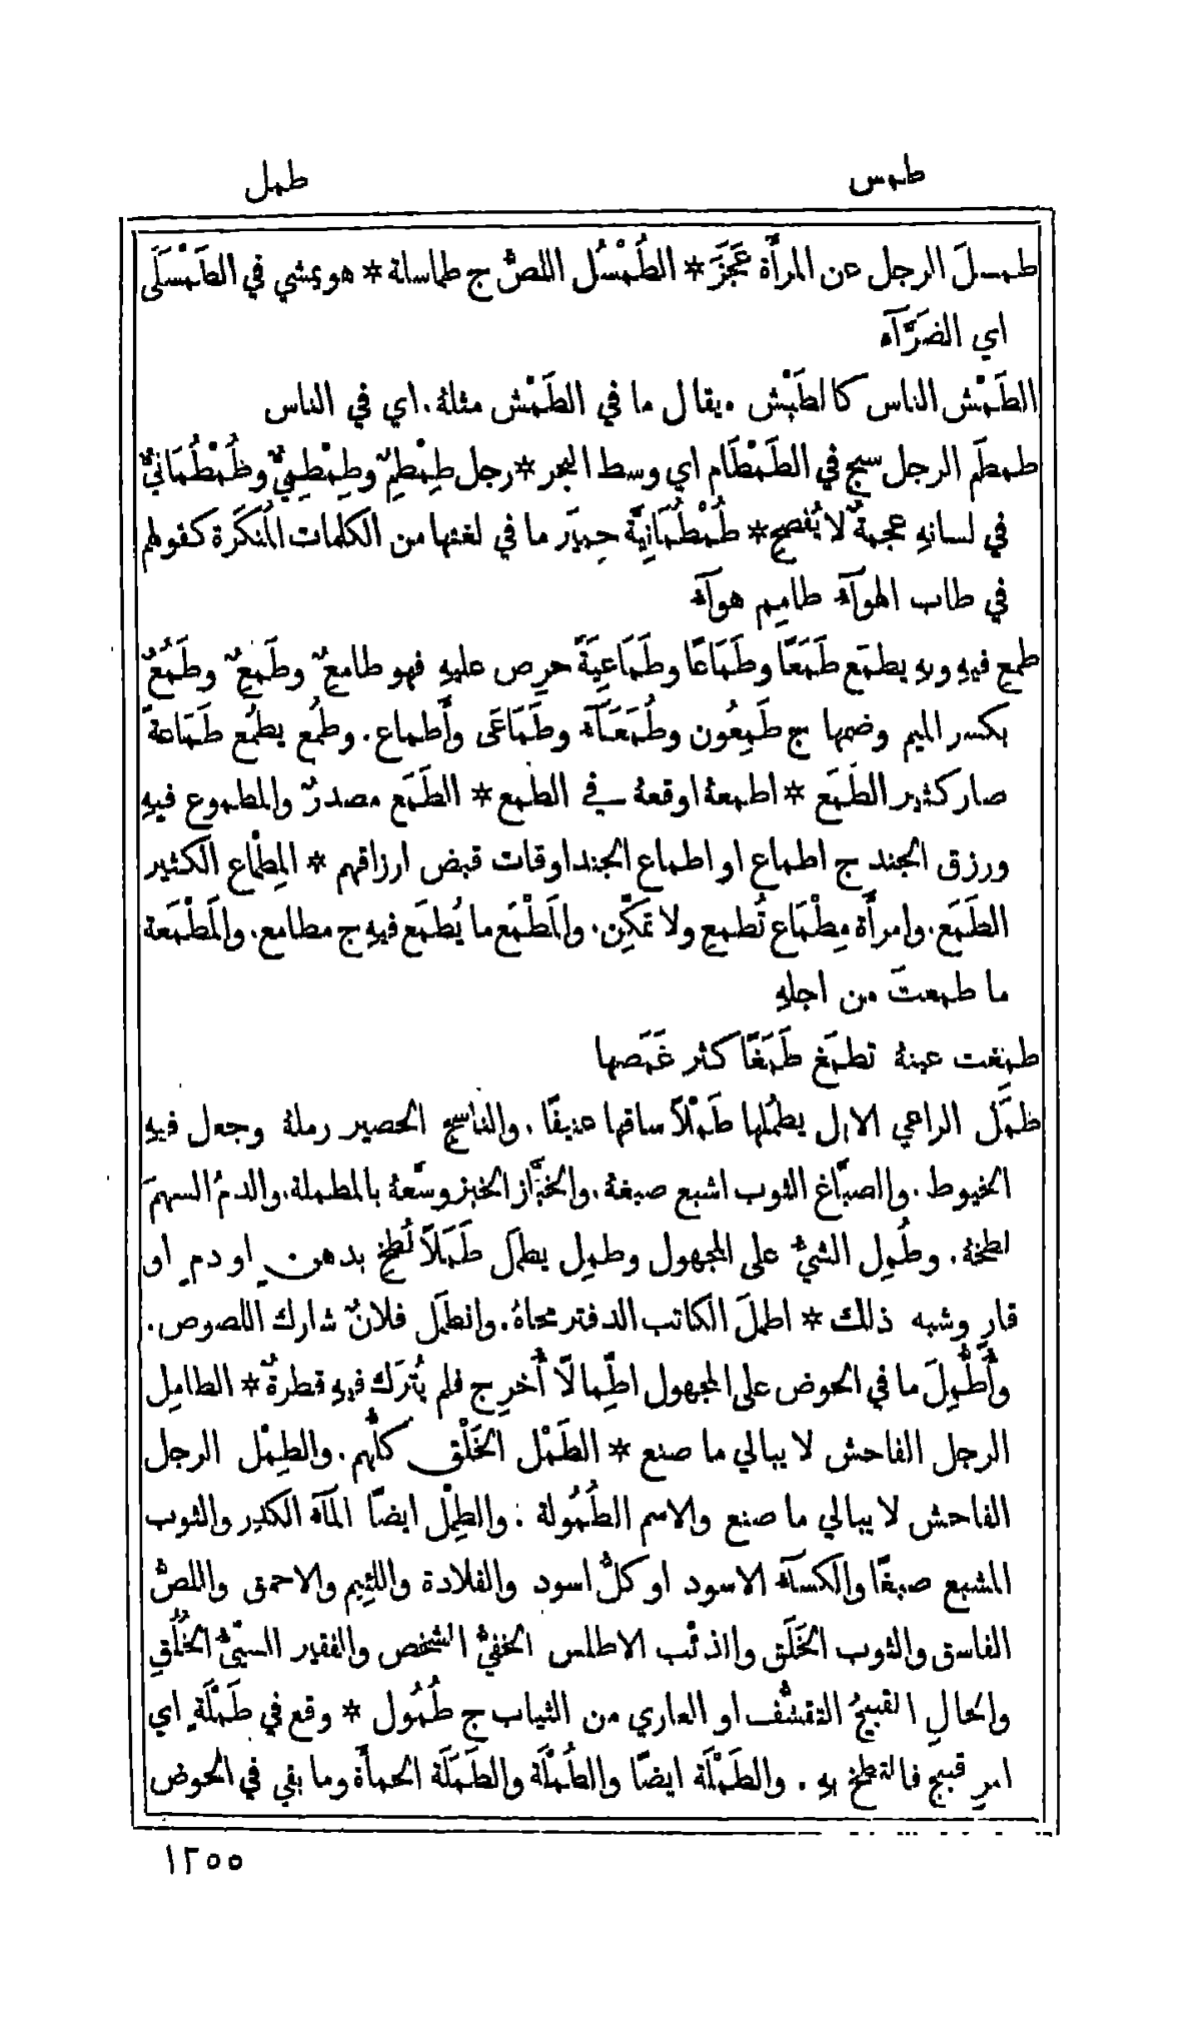 طمس
طمل
طمسلَ الرجل عن المرأَة عَجَزَ * الطُمْسُل اللصُّ ج طماسلة * هو يمشي في الطَمْسَلَى
اي الضَرَّآء
الطَمْش الناس كالطَبْش ۰ يقال ما في الطَمْش مثلهُ ۰ اي في الناس
طمطَم الرجل سبح في الطَمْطَام اي وسط البحر * رجل طِمْطِمٌ وطِمْطِمِيٌّ وطُمْطُمَانِيٌّ
في لسانهِ عجمةٌ لا يُفصِح * طُمْطُمَانِيَّة حِميَر ما في لغتها من الكلمات المُنكَرة كقولهم
في طاب الهوآءُ طامِيم هوآءُ
طمِع فيهِ وبهِ يطمَع طَمَعًا وطَمَاعًا وطَمَاعِيَةً حرِص عليهِ فهو طامعٌ وطَمِعٌ وطَمُعٌ
بكسر الميم وضمها ج طَمِعُون وطُمَعَآءُ وطَمَاعَى وأَطماع ۰ وطمُع يطمُع طَمَاعةً
صار كثير الطَمَع * اطمعهُ اوقعهُ في الطمع * الطَمَع مصدرٌ والمطموع فيهِ
ورزق الجند ج اطماع او اطماع الجند اوقات قبض ارزاقهم * المِطْمَاع الكثير
الطَمَع ۰ وامرأَة مِطْمَاع تُطمِع ولا تمكِّن ۰ والمَطْمَع ما يُطمَع فيهِ ج مطامع ۰ والمَطْمَعة
ما طمعتَ من اجلهِ
طمِغت عينهُ تطمَغ طَمَغًا كثر غَمَصها
طمَل الراعي الابل يطمُلها طَمْلًا ساقها عنيفًا ۰ والناسج الحصير رملهُ وجعل فيهِ
الخيوط ۰ والصبَّاغ الثوب اشبع صبغهُ ۰ والخبَّاز الخبز وسَّعهُ بالمطملة ۰ والدمُ السهمَ
لطخهُ ۰ وطُمِل الشيُّ على المجهول وطمِل يطمَل طَمَلًا لُطِخ بدهنٍ او دمٍ او
قارٍ وشبه ذلك * اطمل الكاتب الدفتر محاهُ ۰ وانطمل فلانٌ شارك اللصوص ۰
وأُطُّمِلَ ما في الحوض على المجهول اطِّمالًا أُخرِج فلم يُترَك فيهِ قطرةٌ * الطامِل
الرجل الفاحش لا يبالي ما صنع * الطَمْل الخَلْق كلُّهم ۰ والطِمْل الرجل
الفاحش لا يبالي ما صنع والاسم الطُمُولة ۰ والطِمْل ايضًا المآءُ الكدِر والثوب
المشبع صبغًا والكسآءُ الاسود او كلُّ اسود والقلادة واللئيم والاحمق واللصُّ
الفاسق والثوب الخَلَق والذئب الاطلس الخفيُّ الشخص والفقير السيّئُ الخُلُقِ
والحالِ القبيحُ التقشُّف او العاري من الثياب ج طُمُول * وقع في طَمْلَةٍ اي
امرٍ قبيح فالتطخ بهِ ۰ والطَمْلَة ايضًا والطُمْلَة والطَمَلَة الحمأَة وما بقي في الحوض
١٢٥٥